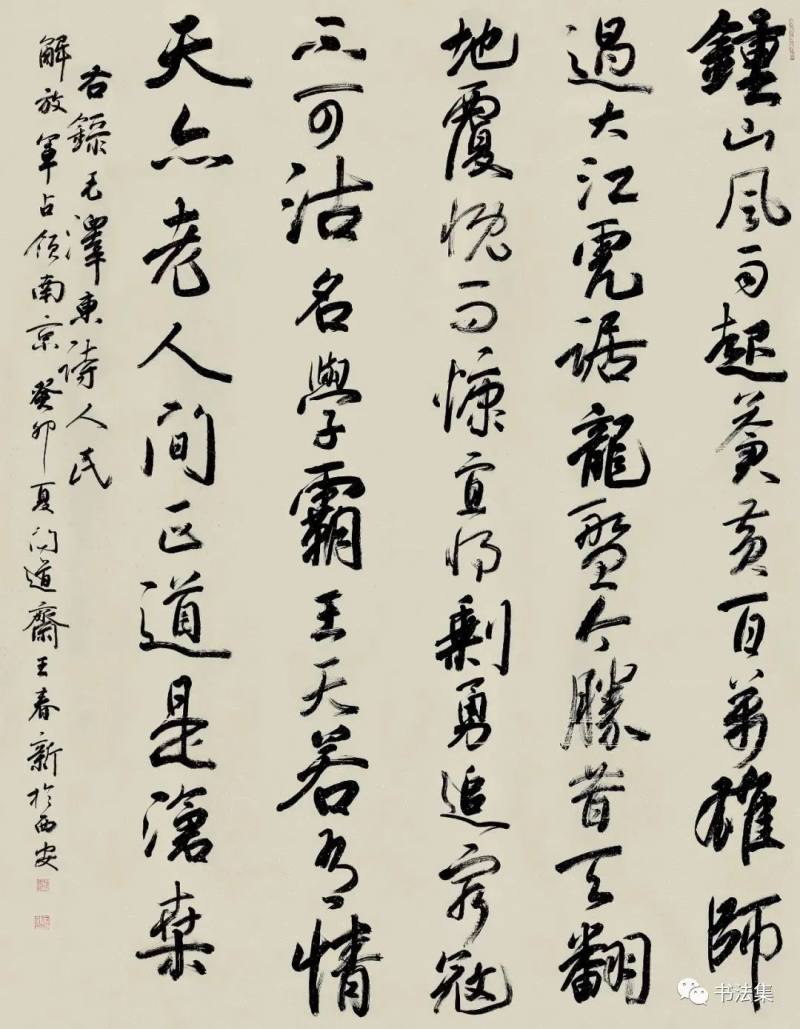 鍾山風雨起蒼黃百萬雄師
過大江虎踞龍盤今勝昔天翻
地覆慨而慷宜將剩勇追窮寇
不可沽名學霸王天若有情
天亦老人間正道是滄桑
右錄毛澤東詩人民
解放軍占領南京癸卯夏問道齋王春新於西安
书法集